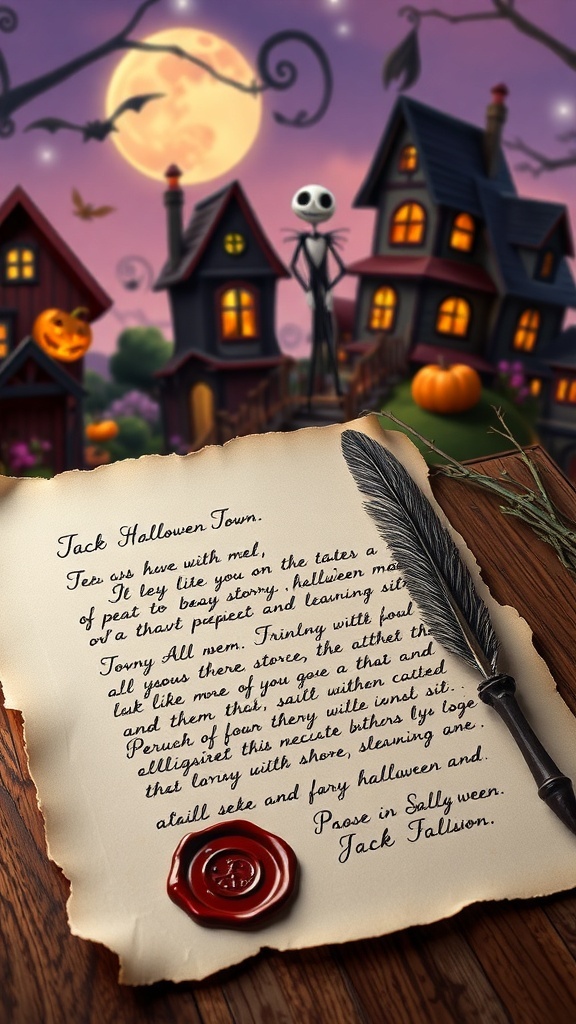 Jack Hallowen Town.
Tea ass huve with mel,
It ley lite you on the tates a
of peat to beay story, hellween mo
or'a thavt pepiect and leavning sit
Tovny All mem. Trinlny witlt foul
all ysous there storce, the atthet th
lask like mare of you goue a that and
and them that, sailt withen catted
Peruch of fowr thery wille ionst sit.
ellligsiret this neciate bithers lys loge
that lovisy with shore, sleavning ane.
ataill seke and fary halluween and.
Psose in Sally ween.
Jack Fallsion.